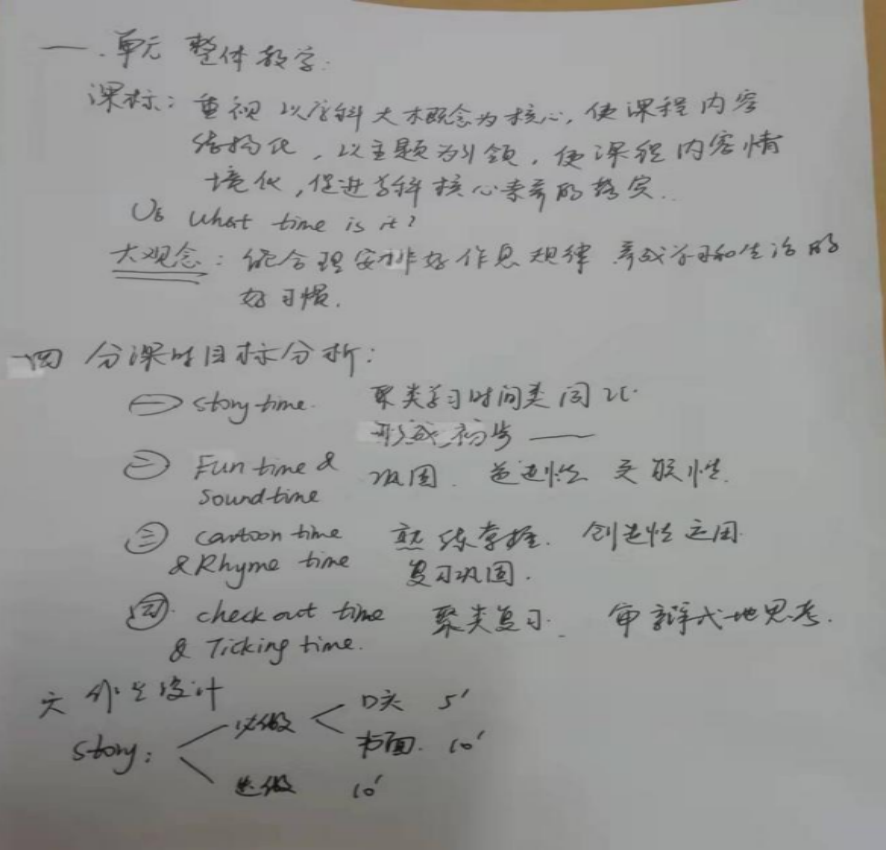 一.单元 整体教学:
课标: 重视 以学科大概念为核心, 使课程内容
结构化, 以主题为引领, 使课程内容情
境化, 促进学科核心素养的落实..
U6 What time is it?
大观念: 能合理安排好作息规律 养成学习和生活的
好习惯.
四 分课时目标分析:
㊀ story time. 聚类学习时间类词汇
形成初步 ——
㊁ Fun time & 巩固. 递进性 关联性.
Sound time
㊂ cartoon time 熟练掌握. 创造性运用
& Rhyme time 复习巩固.
㊃. check out time 聚类复习. 审辩式地思考.
& Ticking time.
六 作业设计
story: 必做 口头 5'
书面. 10'
选做 10'